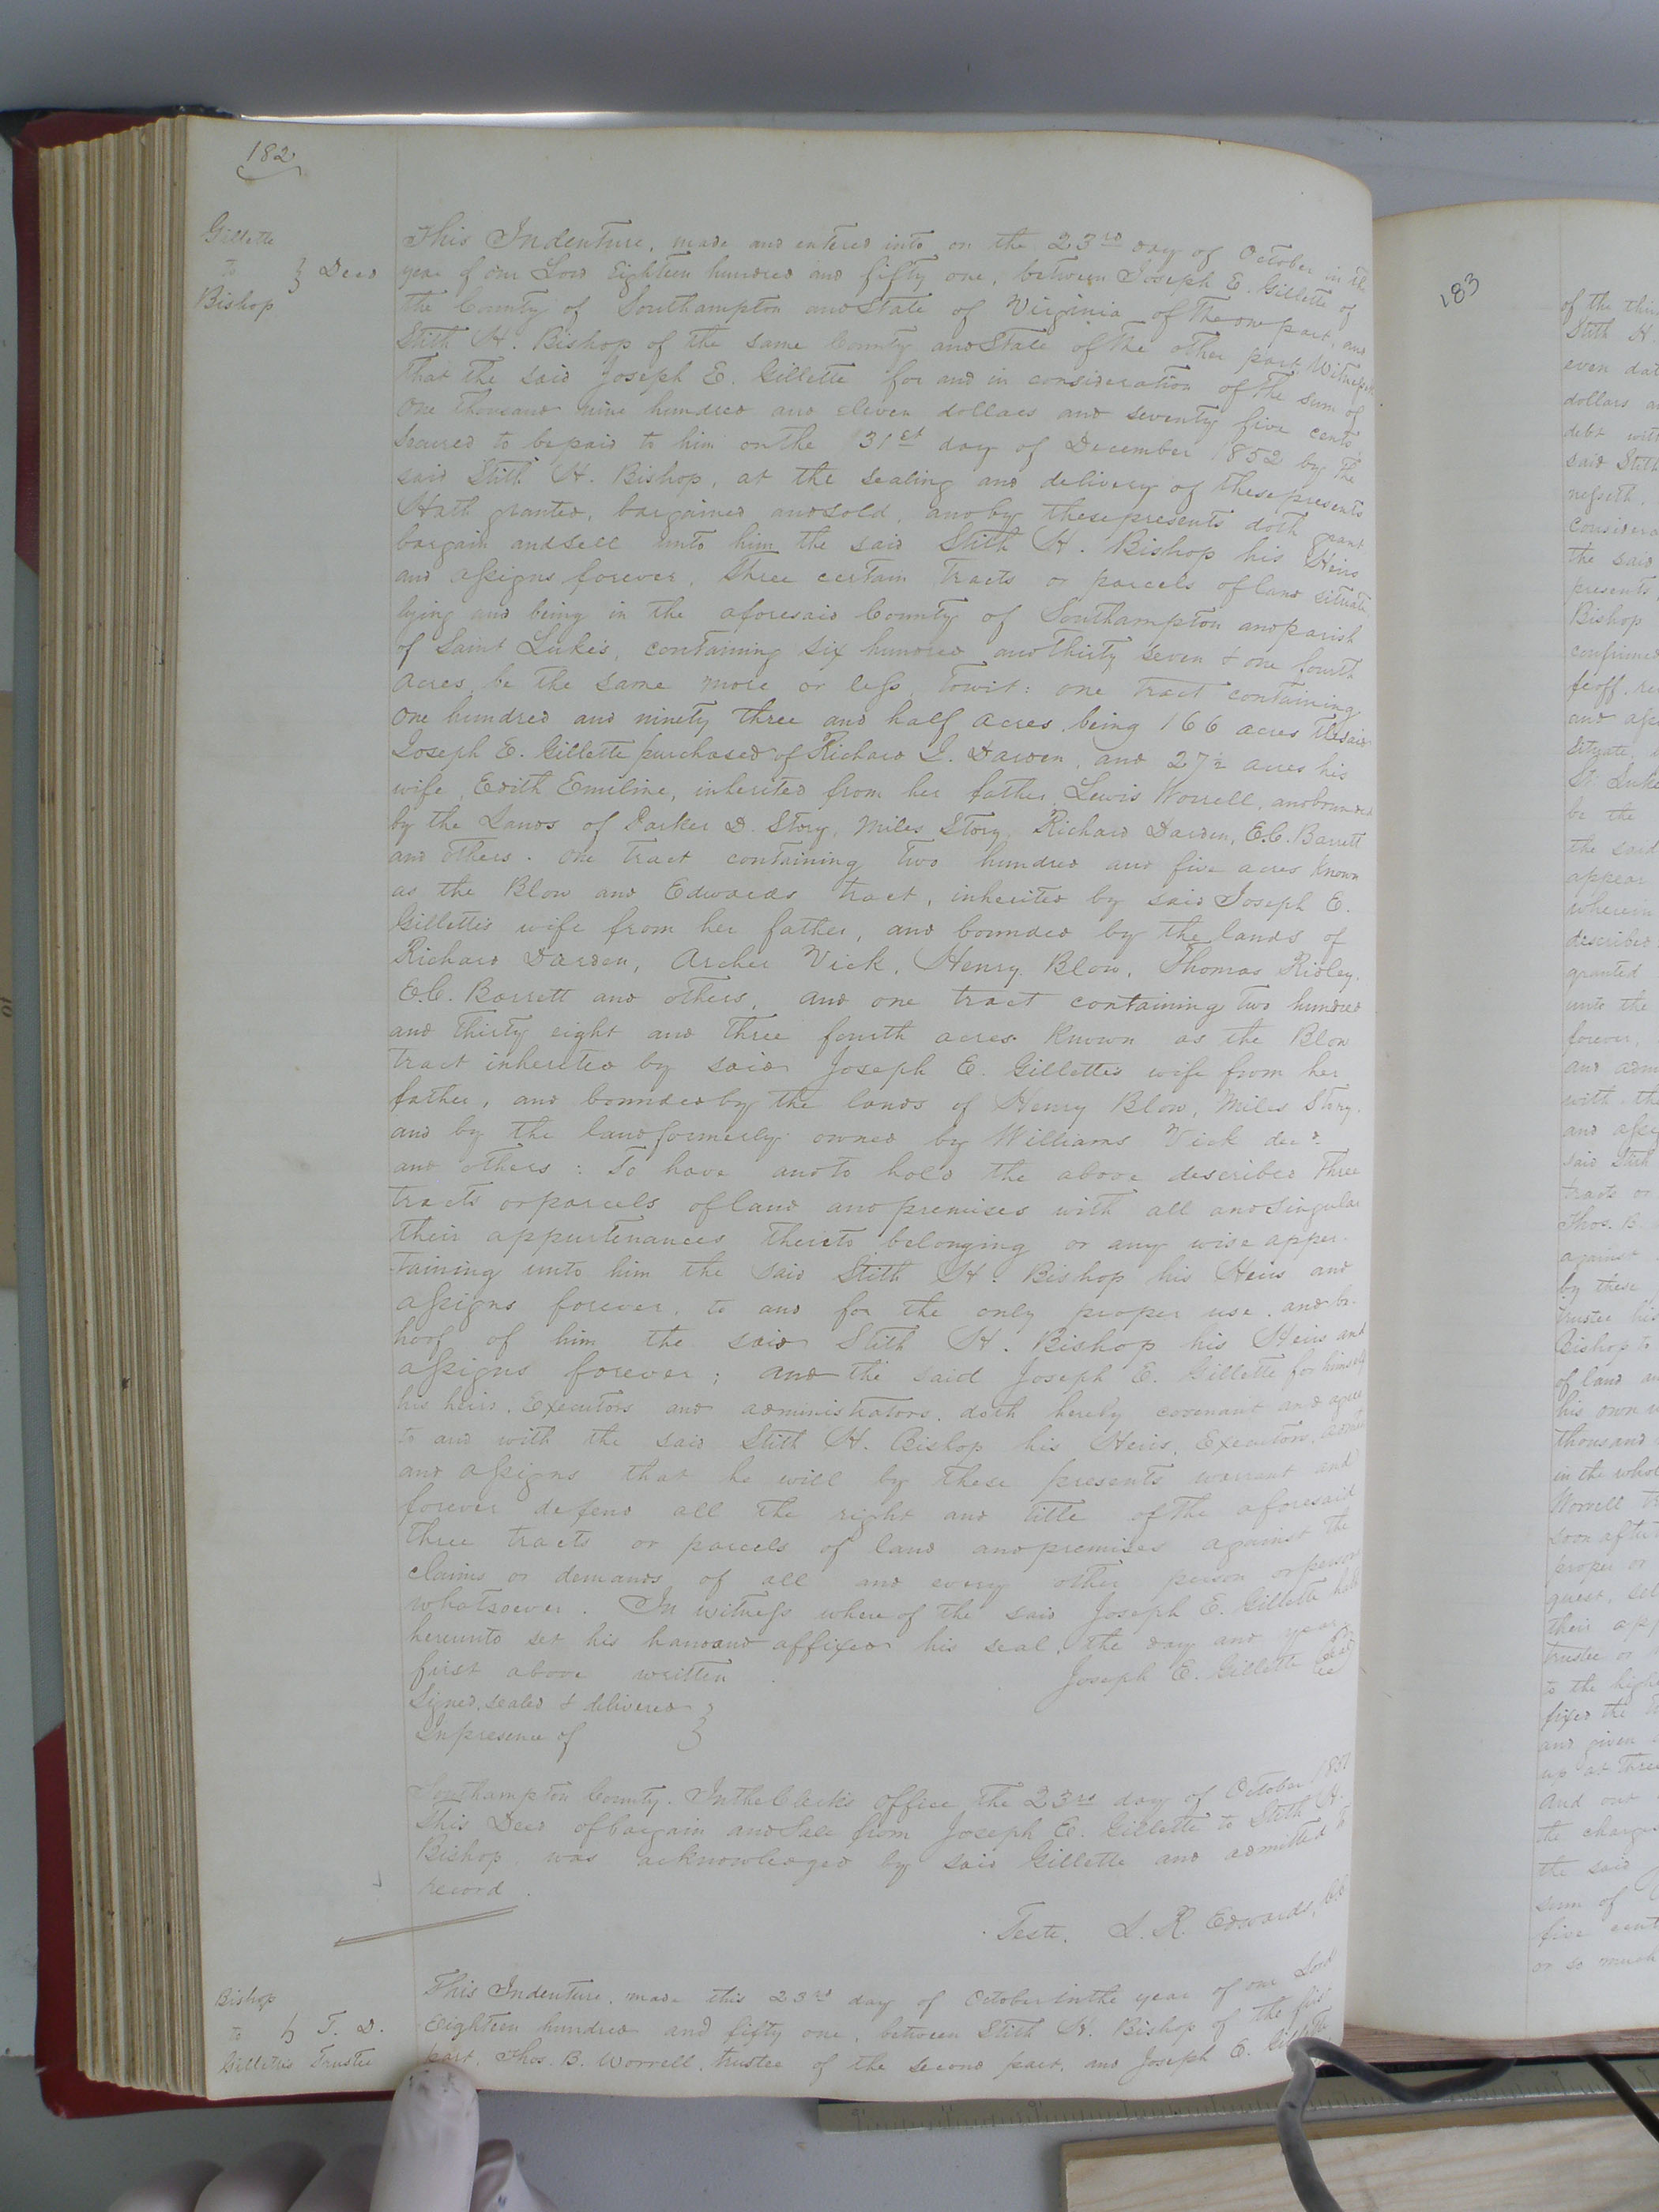 182
Gillette
to } Deed
Bishop
This Indenture, made and entered into on the 23rd day of October in the
year of our Lord Eighteen hundred and fifty one, between Joseph E. Gillette of
the County of Southampton and State of Virginia of the one part, and
Stith H. Bishop of the same County and State of the other part Witnesseth
That the said Joseph E. Gillette for and in consideration of the sum of
One thousand nine hundred and eleven dollars and seventy five cents
secured to be paid to him on the 31st day of December 1852 by the
said Stith H. Bishop, at the sealing and delivery of these presents
Hath granted, bargained and sold, and by these presents doth grant
bargain and sell unto him the said Stith H. Bishop his Heirs
and assigns forever, three certain tracts or parcels of land situate
lying and being in the aforesaid County of Southampton and parish
of Saint Luke's, containing six hundred and thirty seven & one fourth
acres, be the same more or less, Towit: one tract containing
One hundred and ninety three and half acres, being 166 acres the said
Joseph E. Gillette purchased of Richard J. Darden, and 27½ acres his
wife, Edith Emiline, inherited from her father, Lewis Worrell, and bounded
by the Lands of Parker D. Story, Miles Story, Richard Darden, E.C. Barrett
and others. One tract containing two hundred and five acres known
as the Blow and Edwards tract, inherited by said Joseph E.
Gillette's wife from her father, and bounded by the lands of
Richard Darden, Archer Vick, Henry Blow, Thomas Ridley,
E.C. Barrett and others, and one tract containing two hundred
and thirty eight and three fourth acres known as the Blow
tract inherited by said Joseph E. Gillette's wife from her
father, and bounded by the lands of Henry Blow, Miles Story,
and by the land formerly owned by Williams Vick decd.
and others: To have and to hold the above described three
tracts or parcels of land and premises with all and singular
their appurtenances thereto belonging or any wise apper-
taining unto him the said Stith H. Bishop his Heirs and
assigns forever, to and for the only proper use and be-
hoof of him the said Stith H. Bishop his Heirs and
assigns forever; and the said Joseph E. Gillette for himself
his heirs, Executors and administrators, doth hereby covenant and agree
to and with the said Stith H. Bishop his Heirs, Executors, admrs
and assigns that he will by these presents warrant and
forever defend all the right and title of the aforesaid
three tracts or parcels of land and premises against the
claims or demands of all and every other person or persons
whatsoever. In witness whereof the said Joseph E. Gillette hath
hereunto set his hand and affixed his seal, the day and year
first above written.
Joseph E. Gillette Seal
Signed, sealed & delivered }
In presence of
Southampton County. In the Clerk's Office the 23rd day of October 1851
This Deed of bargain and Sale from Joseph E. Gillette to Stith H.
Bishop was acknowledged by said Gillette and admitted to
record.
Teste. L. R. Edwards, C.C.
Bishop
to } T. D.
Gillette's Trustee
This Indenture, made this 23rd day of October in the year of our Lord
Eighteen hundred and fifty one, between Stith H. Bishop of the first
part, Thos. B. Worrell, trustee of the second part, and Joseph E. Gillette
183
of the
Stith H.
even
dollars
debt
said Stith
the said
presents,
Bishop
confirmed
feoff,
and
situate,
St. Luke
be the
the said
appear
wherein
described
granted
unto the
forever,
and
with the
and
said Stith
tracts or
Thos. B.
against
by these
trustee his
Bishop to
of land
his own
thousand
in the
Worrell
soon after
proper or
their
trustee or
to the
fixed the
and given
up at three
and out
the
the said
sum of
five
or so much